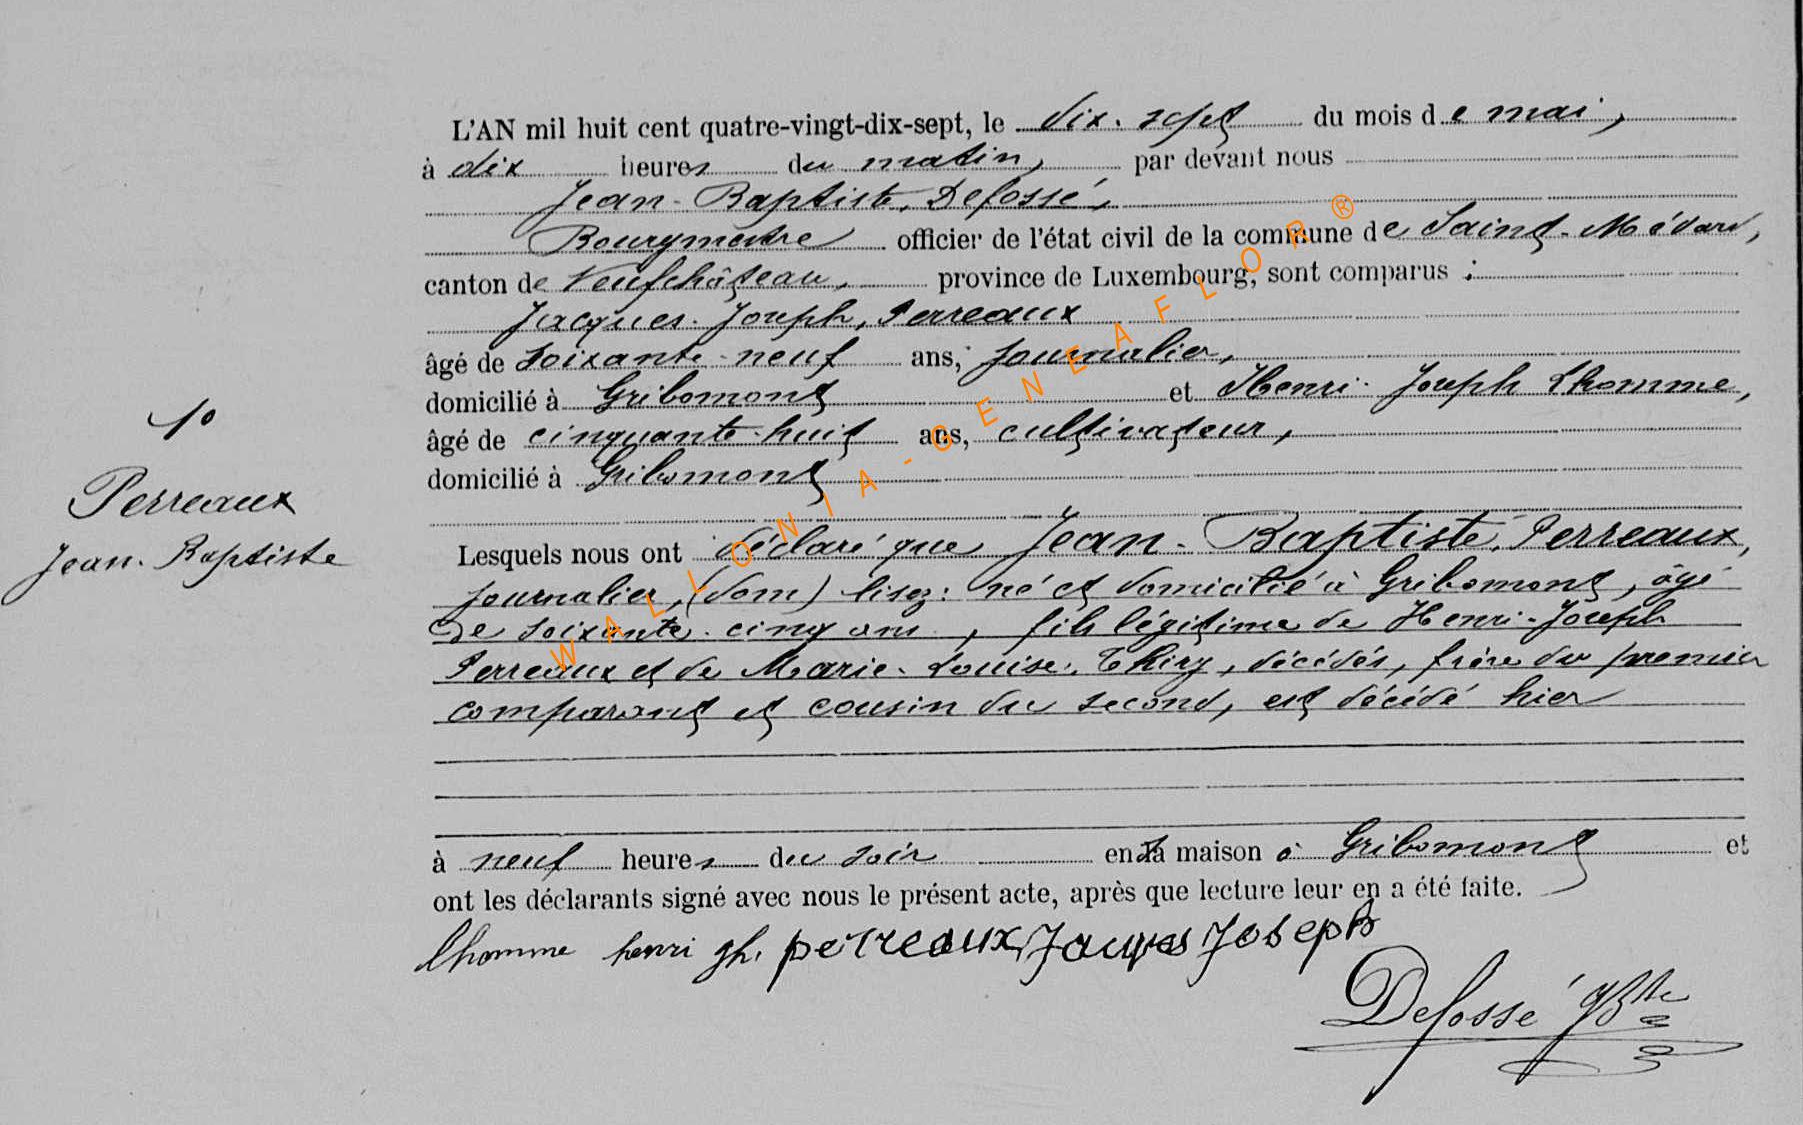 L'AN mil huit cent quatre-vingt-dix-sept, le dix-sept du mois de mai,
à dix heures du matin, par devant nous
Jean-Baptiste, Defossé,
Bourgmestre officier de l'état civil de la commune de Saint-Médard,
canton de Neufchâteau, province de Luxembourg, sont comparus :
Jacques-Joseph, Perreaux
âgé de soixante-neuf ans, journalier,
domicilié à Gribomont et Henri-Joseph Lhomme,
âgé de cinquante-huit ans, cultivateur,
domicilié à Gribomont
Lesquels nous ont déclaré que Jean-Baptiste, Perreaux,
journalier, (dom) lisez: né et domicilié à Gribomont, âgé
de soixante-cinq ans, fils légitime de Henri-Joseph
Perreaux et de Marie-Louise, Thiry, décédés, frère du premier
comparant et cousin du second, est décédé hier
à neuf heures du soir en sa maison à Gribomont et
ont les déclarants signé avec nous le présent acte, après que lecture leur en a été faite.
lhomme henri jh. perreaux Jacques Joseph
Defossé JBte
10
Perreaux
Jean-Baptiste
WALLONIA-GENEAFLOR®